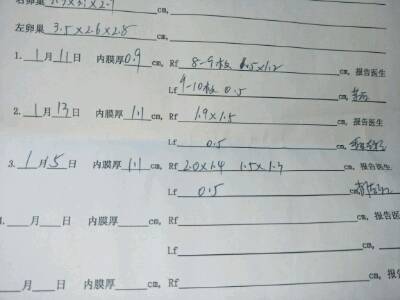 右卵巢 cm,
左卵巢 3.5×2.6×2.8 cm,
1. 1月11日 内膜厚0.9cm, Rf 8-9枚 ×1.2 cm, 报告医生
Lf 9-10枚 0.5 cm,
2. 1月13日 内膜厚 1.1 cm, Rf 1.9×1.5 cm, 报告医
Lf 0.5 cm,
3. 1月5日 内膜厚 1.1 cm, Rf 2.0×1.4 1.5×1.3 cm, 报告医生
Lf 0.5 cm
月 日 内膜厚 cm, Rf cm, 报告医
Lf cm,
月 日 内膜厚 cm, Rf cm, 报告